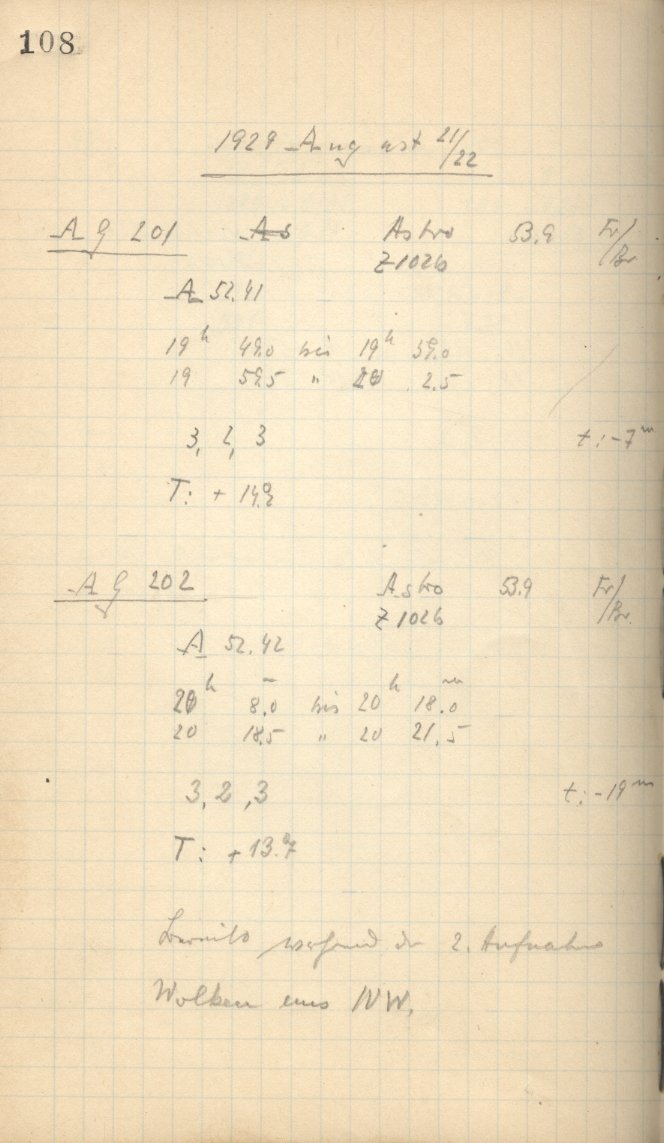 108
1929 August 21/22
AG 201 As Astro 53.9 Fr/
Z1026 /Br
A 52.41
19h 49.0 bis 19h 59.0
19 59.5 " 20 2.5
3, 2, 3 t: -7m
T: +14.2
AG 202 Astro 53.9 Fr/
Z1026 /Br.
A 52.42
20h 8.0 bis 20h 18.0
20 18.5 " 20 21.5
3, 2, 3 t: -19m
T: +13.7
während der 2. Aufnahme
Wolken aus NW.